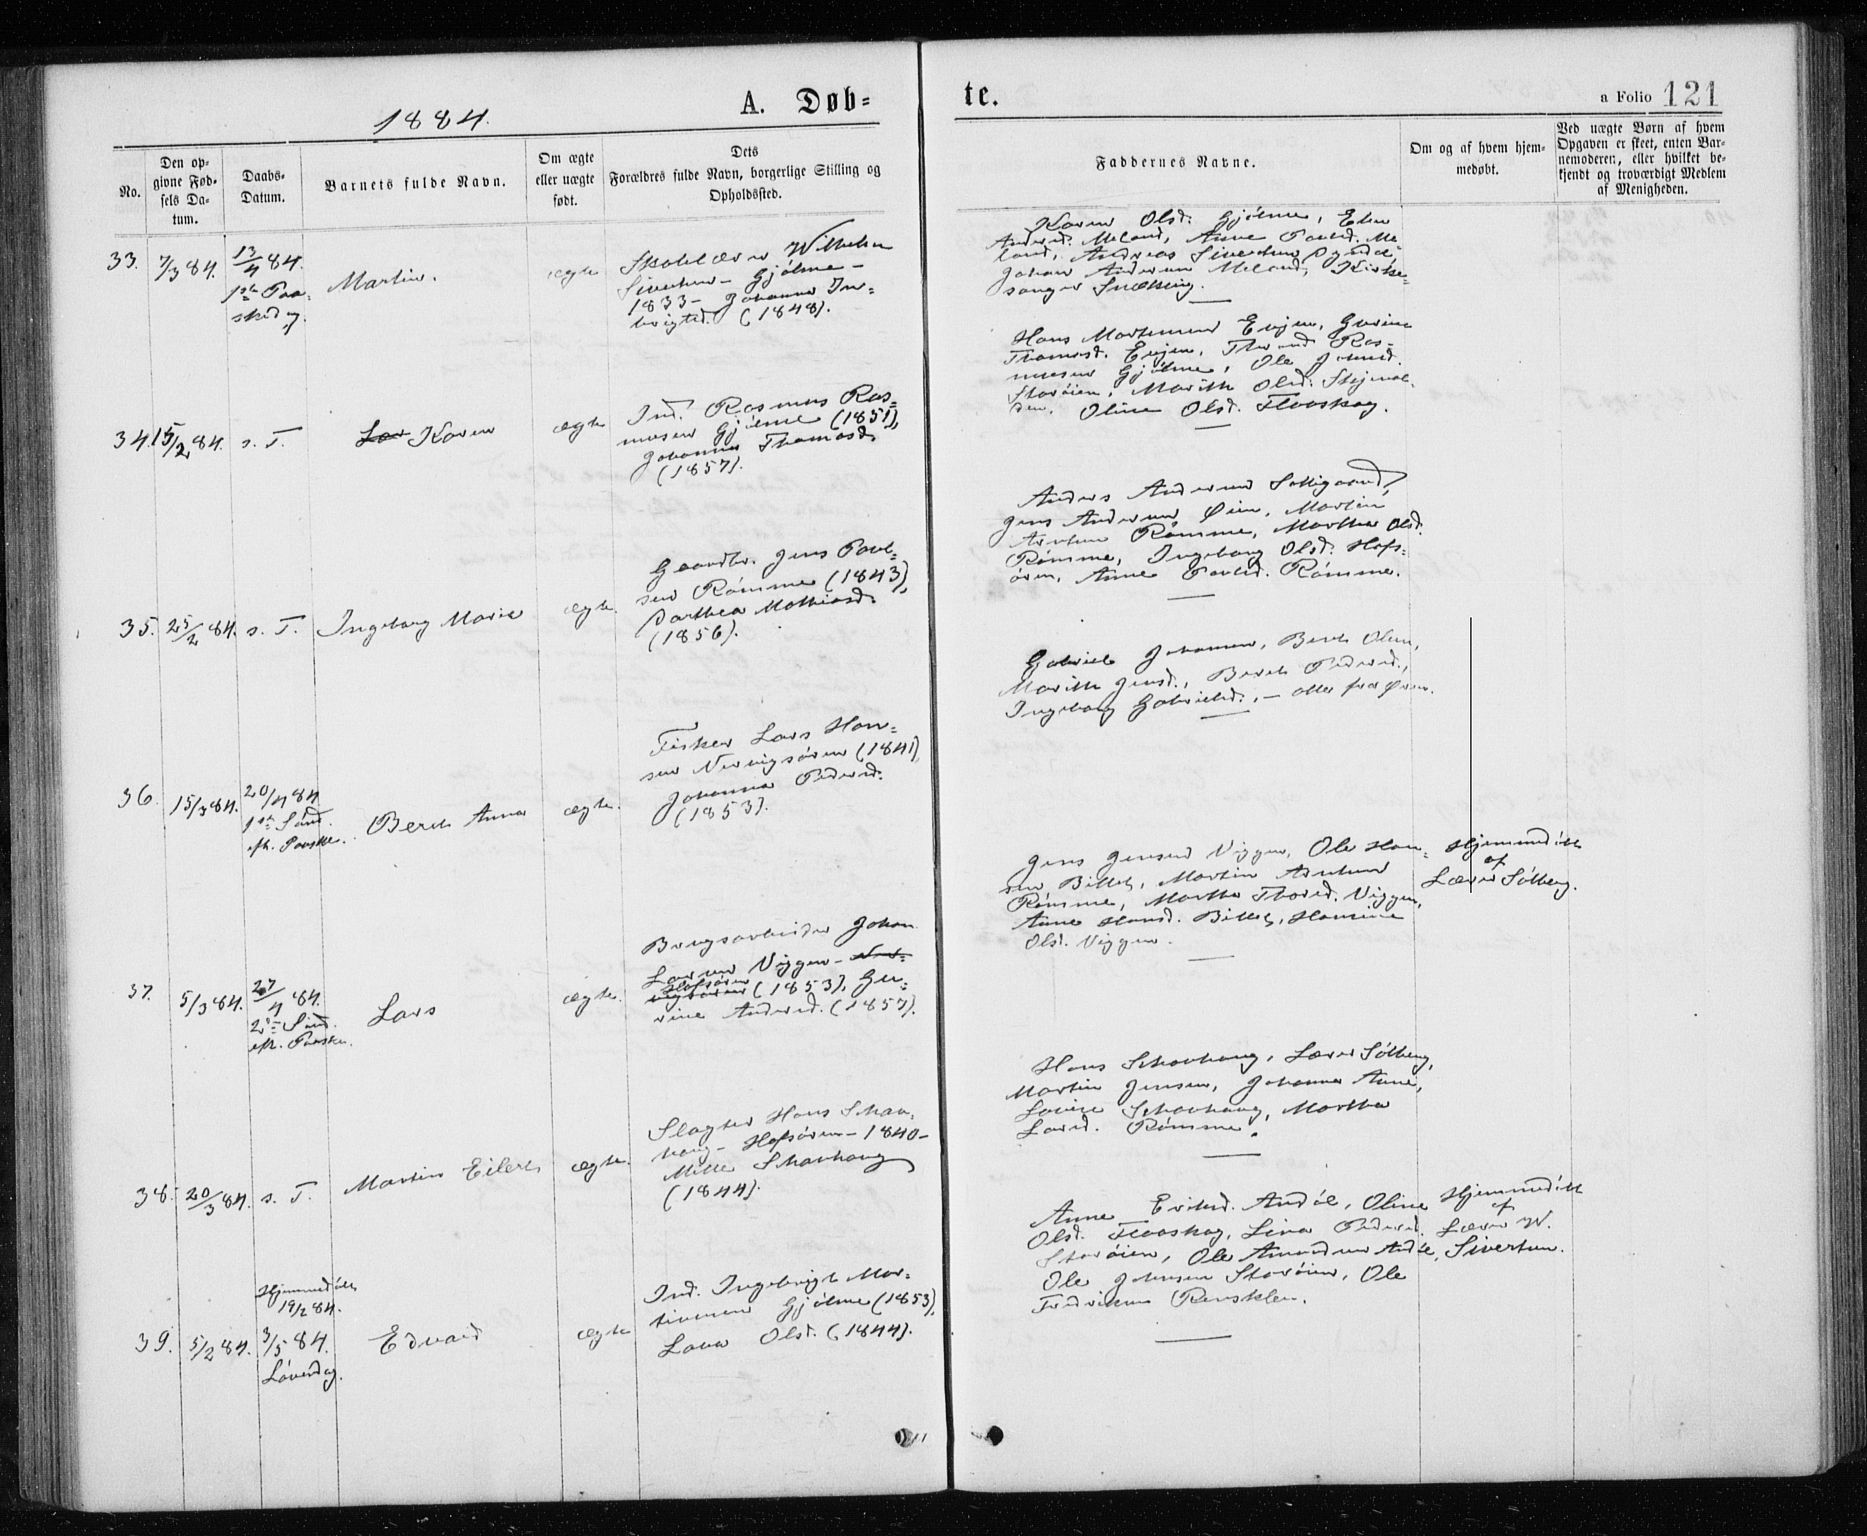 1884.
A. Døb-
te.
a Folio 121
No.
Den op-
givne Fød-
sels Da-
tum.
Daabs-
Datum.
Barnets fulde Navn.
Om ægte
eller uægte
født.
Dets
Forældres fulde Navn, borgerlige Stilling og
Opholdssted.
Faddernes Navne.
Om og af hvem hjem-
medøbt.
Ved uægte Børn af hvem
Opgaven er skeet, enten Bar-
nemoderen, eller hvilket be-
kjendt og troværdigt Medlem
af Menigheden.
33. 7/3 84. 13/4 84.
1ste Paa-
skedag.
Martin.
ægte
Skolelærer Wilhelm
Sivertsen - Gjølme -
1833 - Johanna In-
brigtsd. (1848).
Karen Olsd. Gjølme, Elen
Andersd. Meland, Anne Paulsd. Me-
land, Andreas Sivertsen
Johan Andersen Meland, Kirke-
sanger Snekving.
34. 15/2 84. s. T.
Lar Karen
ægte
Ind. Rasmus Ras-
musen Gjølme (1851),
Johanna Thomasd.
(1857).
Hans Mortensen Evjen, Gurine
Thomasd. Evjen, Thorand Ras-
musen Gjølme, Ole Johnsd.
Storøien, Marith Olsd. Skjenal-
den, Oline Olsd. Floaskag.
35. 25/2 84. s. T.
Ingeborg Marie
ægte.
Gaardbr. Jens Paul-
sen Rømme (1843),
Dorthea Mathiasd.
(1856).
Anders Andersen Solligaard,
Jens Andersen Øien, Martin
Arntsen Rømme, Martha Olsd.
Rømme, Ingeborg Olsd. Hofs-
ören, Anne Paulsd. Rømme.
36. 15/3 84. 20/4 84
1ste Sønd.
eft. Paaske.
Beret Anna
ægte.
Fisker Lars Han-
sen Nervigsøren (1841)
Johanna Pedersd.
(1853).
Gabriel Johansen, Berit Olsen,
Marith Jensd., Beret Pedersd.,
Ingeborg Gabrielsd., - alle fra Øren.
37. 5/3 84. 27/4 84.
2den Sønd.
eft. Paaske.
Lars
ægte.
Brugsarbeider Johan
Larsen Viggen - Ner-
vigsøren Hofsøren (1853), Gu-
rine Andersd. (1857).
Jens Jensen Viggen, Ole Han-
sen Billet, Martin Arntsen
Rømme, Martha Thoresd. Viggen,
Anne Hansd. Billet, Hansine
Olsd. Viggen.
Hjemmedøbt
af
Lærer Sølberg.
38. 20/3 84. s. T.
Martin Eilert
ægte.
Slagter Hans Skau-
haug - Hofsøren - 1840 -
Mette Skauhaug
(1844).
Hans Skauhaug, Lærer Sølberg,
Martin Jensen, Johanna Anne,
Lovise Skauhaug, Martha
Larsd. Rømme.
39. 5/2 84.
Hjemmedøbt
19/2 84.
3/5 84.
Løverdag.
Edvard
ægte
Ind. Ingebrigt Mar-
tinsen Gjølme (1853),
Lava Olsd. (1844).
Anne Eriksd. Andöl, Oline
Olsd. Floaskag, Lina Pedersd.
Storøien, Ole Amundsen Andöl,
Ole Johnsen Storøien, Ole
Fredriksen Rensklev.
Hjemmedøbt
af
Lærer W.
Sivertsen.